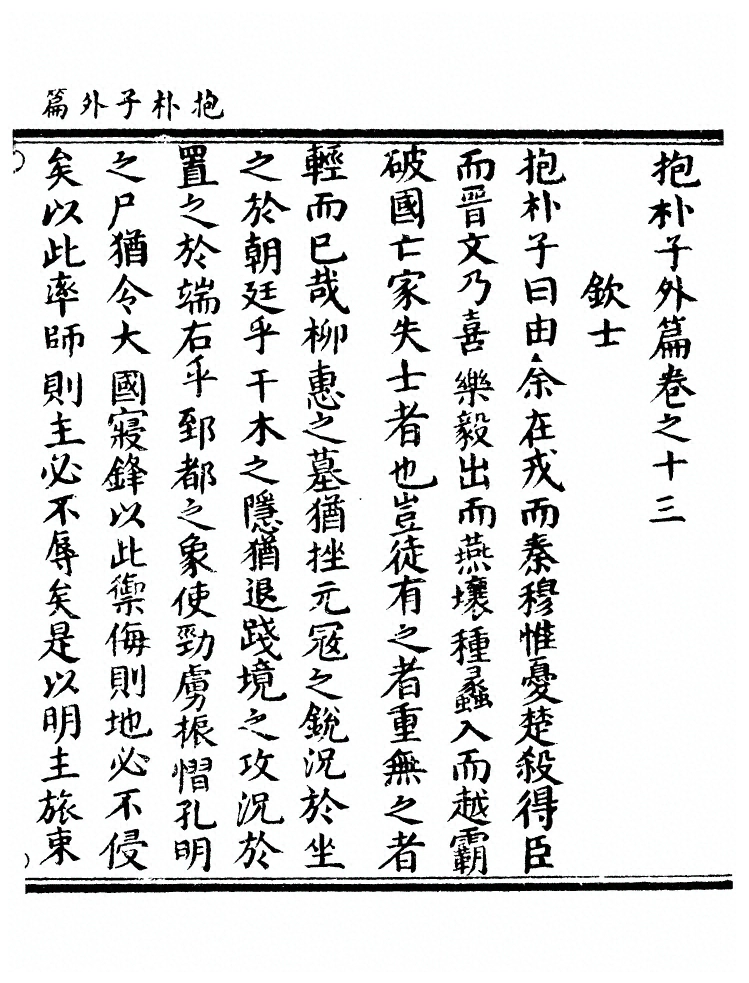 抱朴子外篇
抱朴子外篇卷之十三
欽士
抱朴子曰由余在戎而秦穆惟憂楚殺得臣
而晋文乃喜樂毅出而燕壞種蠡入而越霸
破國亡家失士者也豈徒有之者重無之者
輕而已哉柳惠之墓猶挫元寇之銳況於坐
之於朝廷乎干木之隱猶退踐境之攻況於
置之於端右乎郅都之象使勁虜振慴孔明
之尸猶令大國寢鋒以此禦侮則地必不侵
矣以此率師則主必不辱矣是以明主旅東